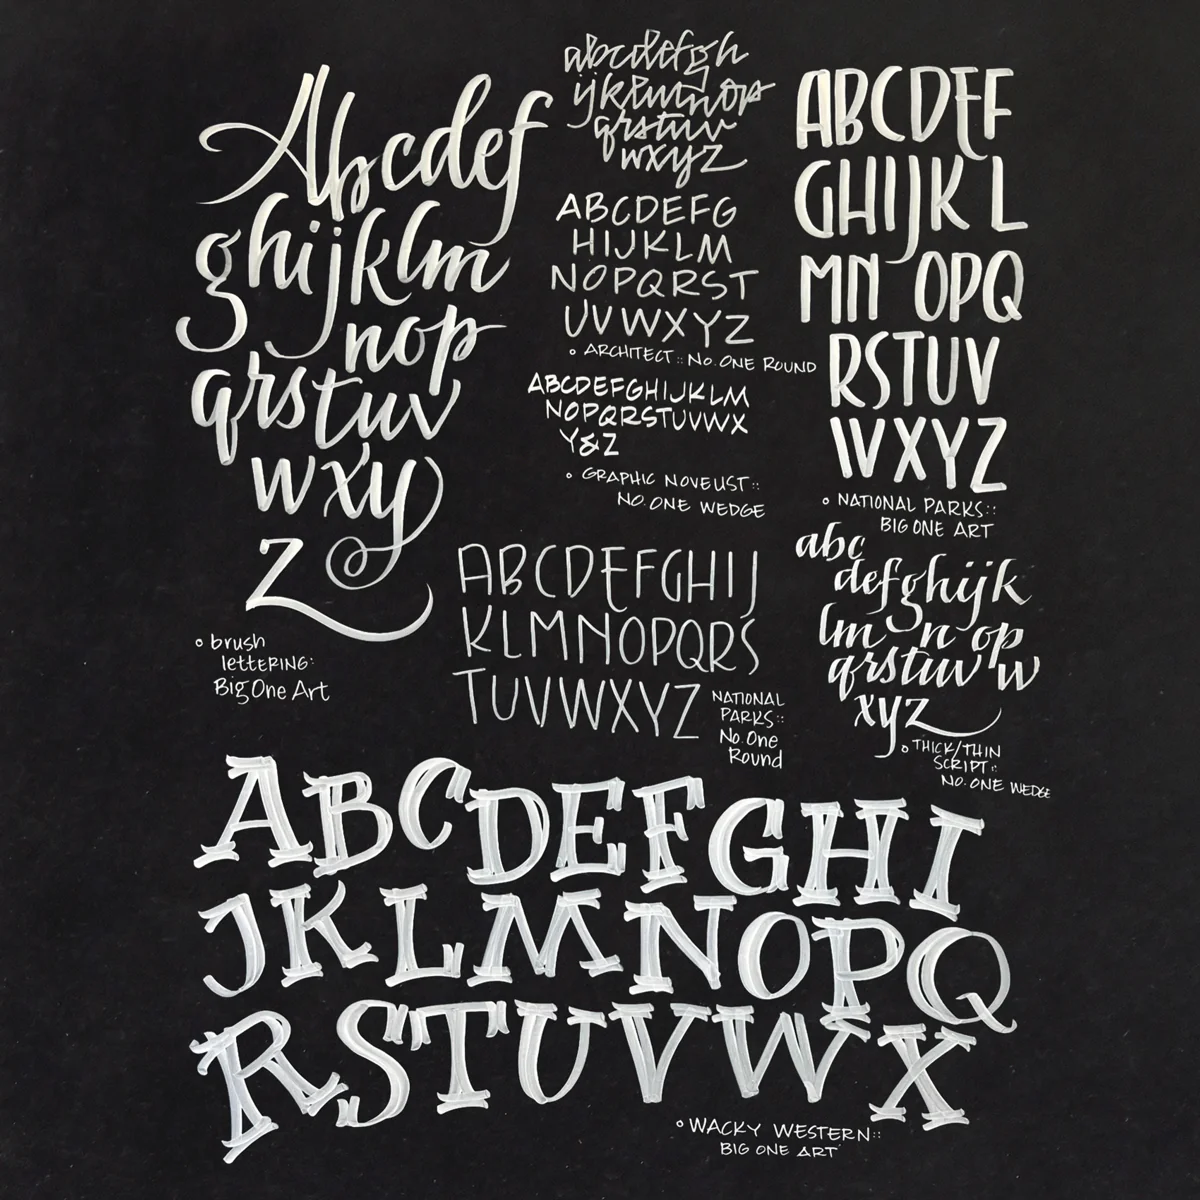 Abcdef
ghijklm
nop
qrstuv
wxy
z
brush
lettering:
Big One Art
abcdefgh
ijklmnop
qrstuv
wxyz
ABCDEFG
HIJKLM
NOPQRST
UVWXYZ
ARCHITECT :: NO. ONE ROUND
ABCDEFGHIJKLM
NOPQRSTUVWX
Y&Z
GRAPHIC NOVELIST ::
NO. ONE WEDGE
ABCDEFGHIJ
KLMNOPQRS
TUVWXYZ
NATIONAL
PARKS ::
No. One
Round
ABCDEF
GHIJKL
MNOPQ
RSTUV
WXYZ
NATIONAL PARKS ::
BIG ONE ART
abc
defghijk
lmnop
qrstuvw
xyz
THICK/THIN
SCRIPT ::
NO. ONE WEDGE
ABCDEFGHI
JKLMNOPQ
RSTUVWX
WACKY WESTERN ::
BIG ONE ART